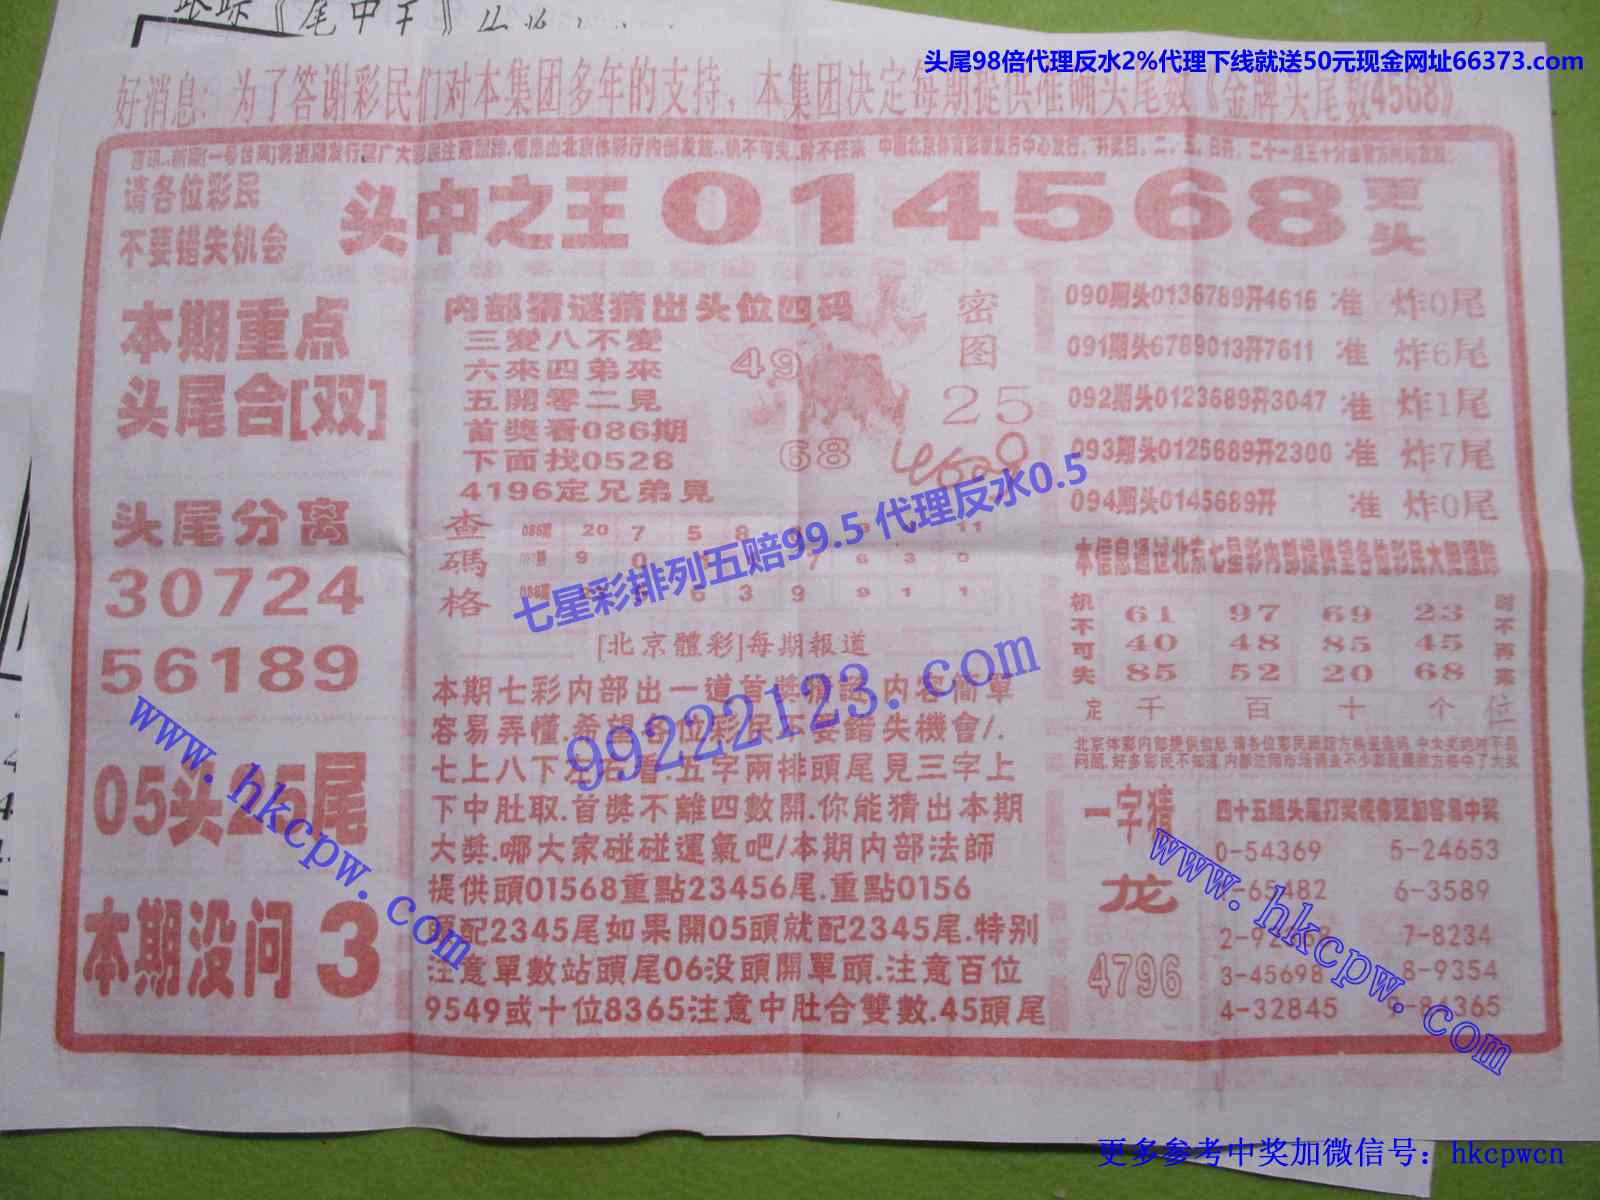 头尾98倍代理反水2%代理下线就送50元现金网址66373.com
好消息：为了答谢彩民们对本集团多年的支持，本集团决定每期提供准确头尾数《金牌头尾数4568》
请各位彩民
不要错失机会
头中之王014568更头
本期重点
头尾合[双]
头尾分离
30724
56189
05头25尾
本期没问3
内部猜谜猜出头位四码
三變八不變
六來四弟來
五開零二見
首獎看086期
下面找0528
4196定兄弟見
49
68
密图
25
查碼格
086期 20 7 5 8
[北京體彩]每期報道
本期七彩内部出一道首獎猜謎,内容簡單
容易弄懂.希望各位彩民不要錯失機會/.
七上八下左右看.五字兩排頭尾見三字上
下中肚取.首獎不離四數開.你能猜出本期
大獎.哪大家碰碰運氣吧/本期内部法師
提供頭01568重點23456尾.重點0156
配2345尾如果開05頭就配2345尾.特别
注意單數站頭尾06没頭開單頭.注意百位
9549或十位8365注意中肚合雙數.45頭尾
090期头0136789开4616 准 炸0尾
091期头6789013开7611 准 炸6尾
092期头0123689开3047 准 炸1尾
093期头0125689开2300 准 炸7尾
094期头0145689开 准 炸0尾
本信息通过北京七星彩内部提供望各位彩民大胆跟踪
机不可失
61 97 69 23
40 48 85 45
85 52 20 68
时不再来
定 千 百 十 个 位
一字猜
龙
4796
四十五组头尾打奖使你更加容易中奖
0-54369 5-24653
-65482 6-3589
7-8234
3-45698 8-9354
4-32845
七星彩排列五赔99.5 代理反水0.5
99222123.com
www.hkcpw.com
www.hkcpw.com
更多参考中奖加微信号：hkcpwcn